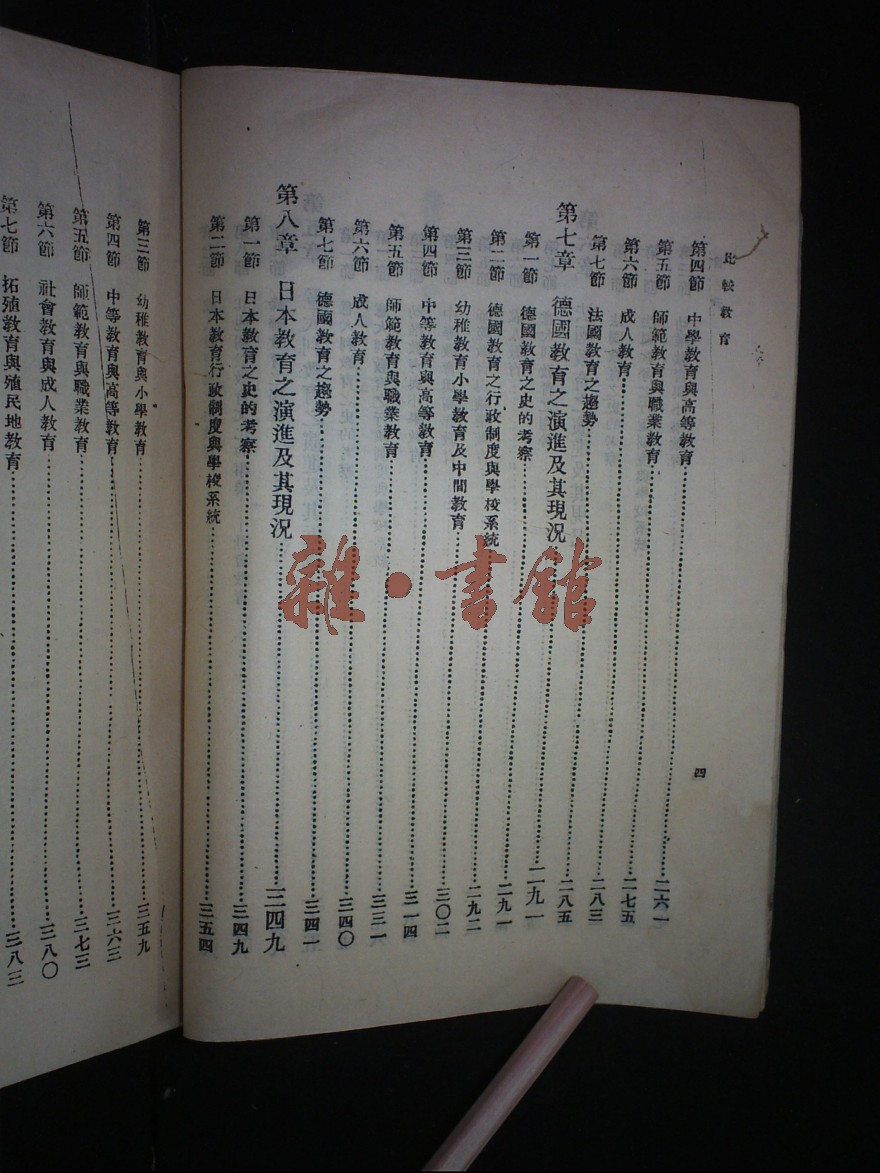 比較教育
四
第四節 中學教育與高等教育……二六一
第五節 師範教育與職業教育……二七五
第六節 成人教育……二八三
第七節 法國教育之趨勢……二八五
第七章 德國教育之演進及其現況……二九一
第一節 德國教育之史的考察……二九一
第二節 德國教育之行政制度與學校系統……二九二
第三節 幼稚教育小學教育及中間教育……三〇二
第四節 中等教育與高等教育……三一四
第五節 師範教育與職業教育……三三一
第六節 成人教育……三四〇
第七節 德國教育之趨勢……三四一
第八章 日本教育之演進及其現況……三四九
第一節 日本教育之史的考察……三四九
第二節 日本教育行政制度與學校系統……三五四
第三節 幼稚教育與小學教育……三五九
第四節 中等教育與高等教育……三六三
第五節 師範教育與職業教育……三七三
第六節 社會教育與成人教育……三八〇
第七節 拓殖教育與殖民地教育……三八三
雜·書館